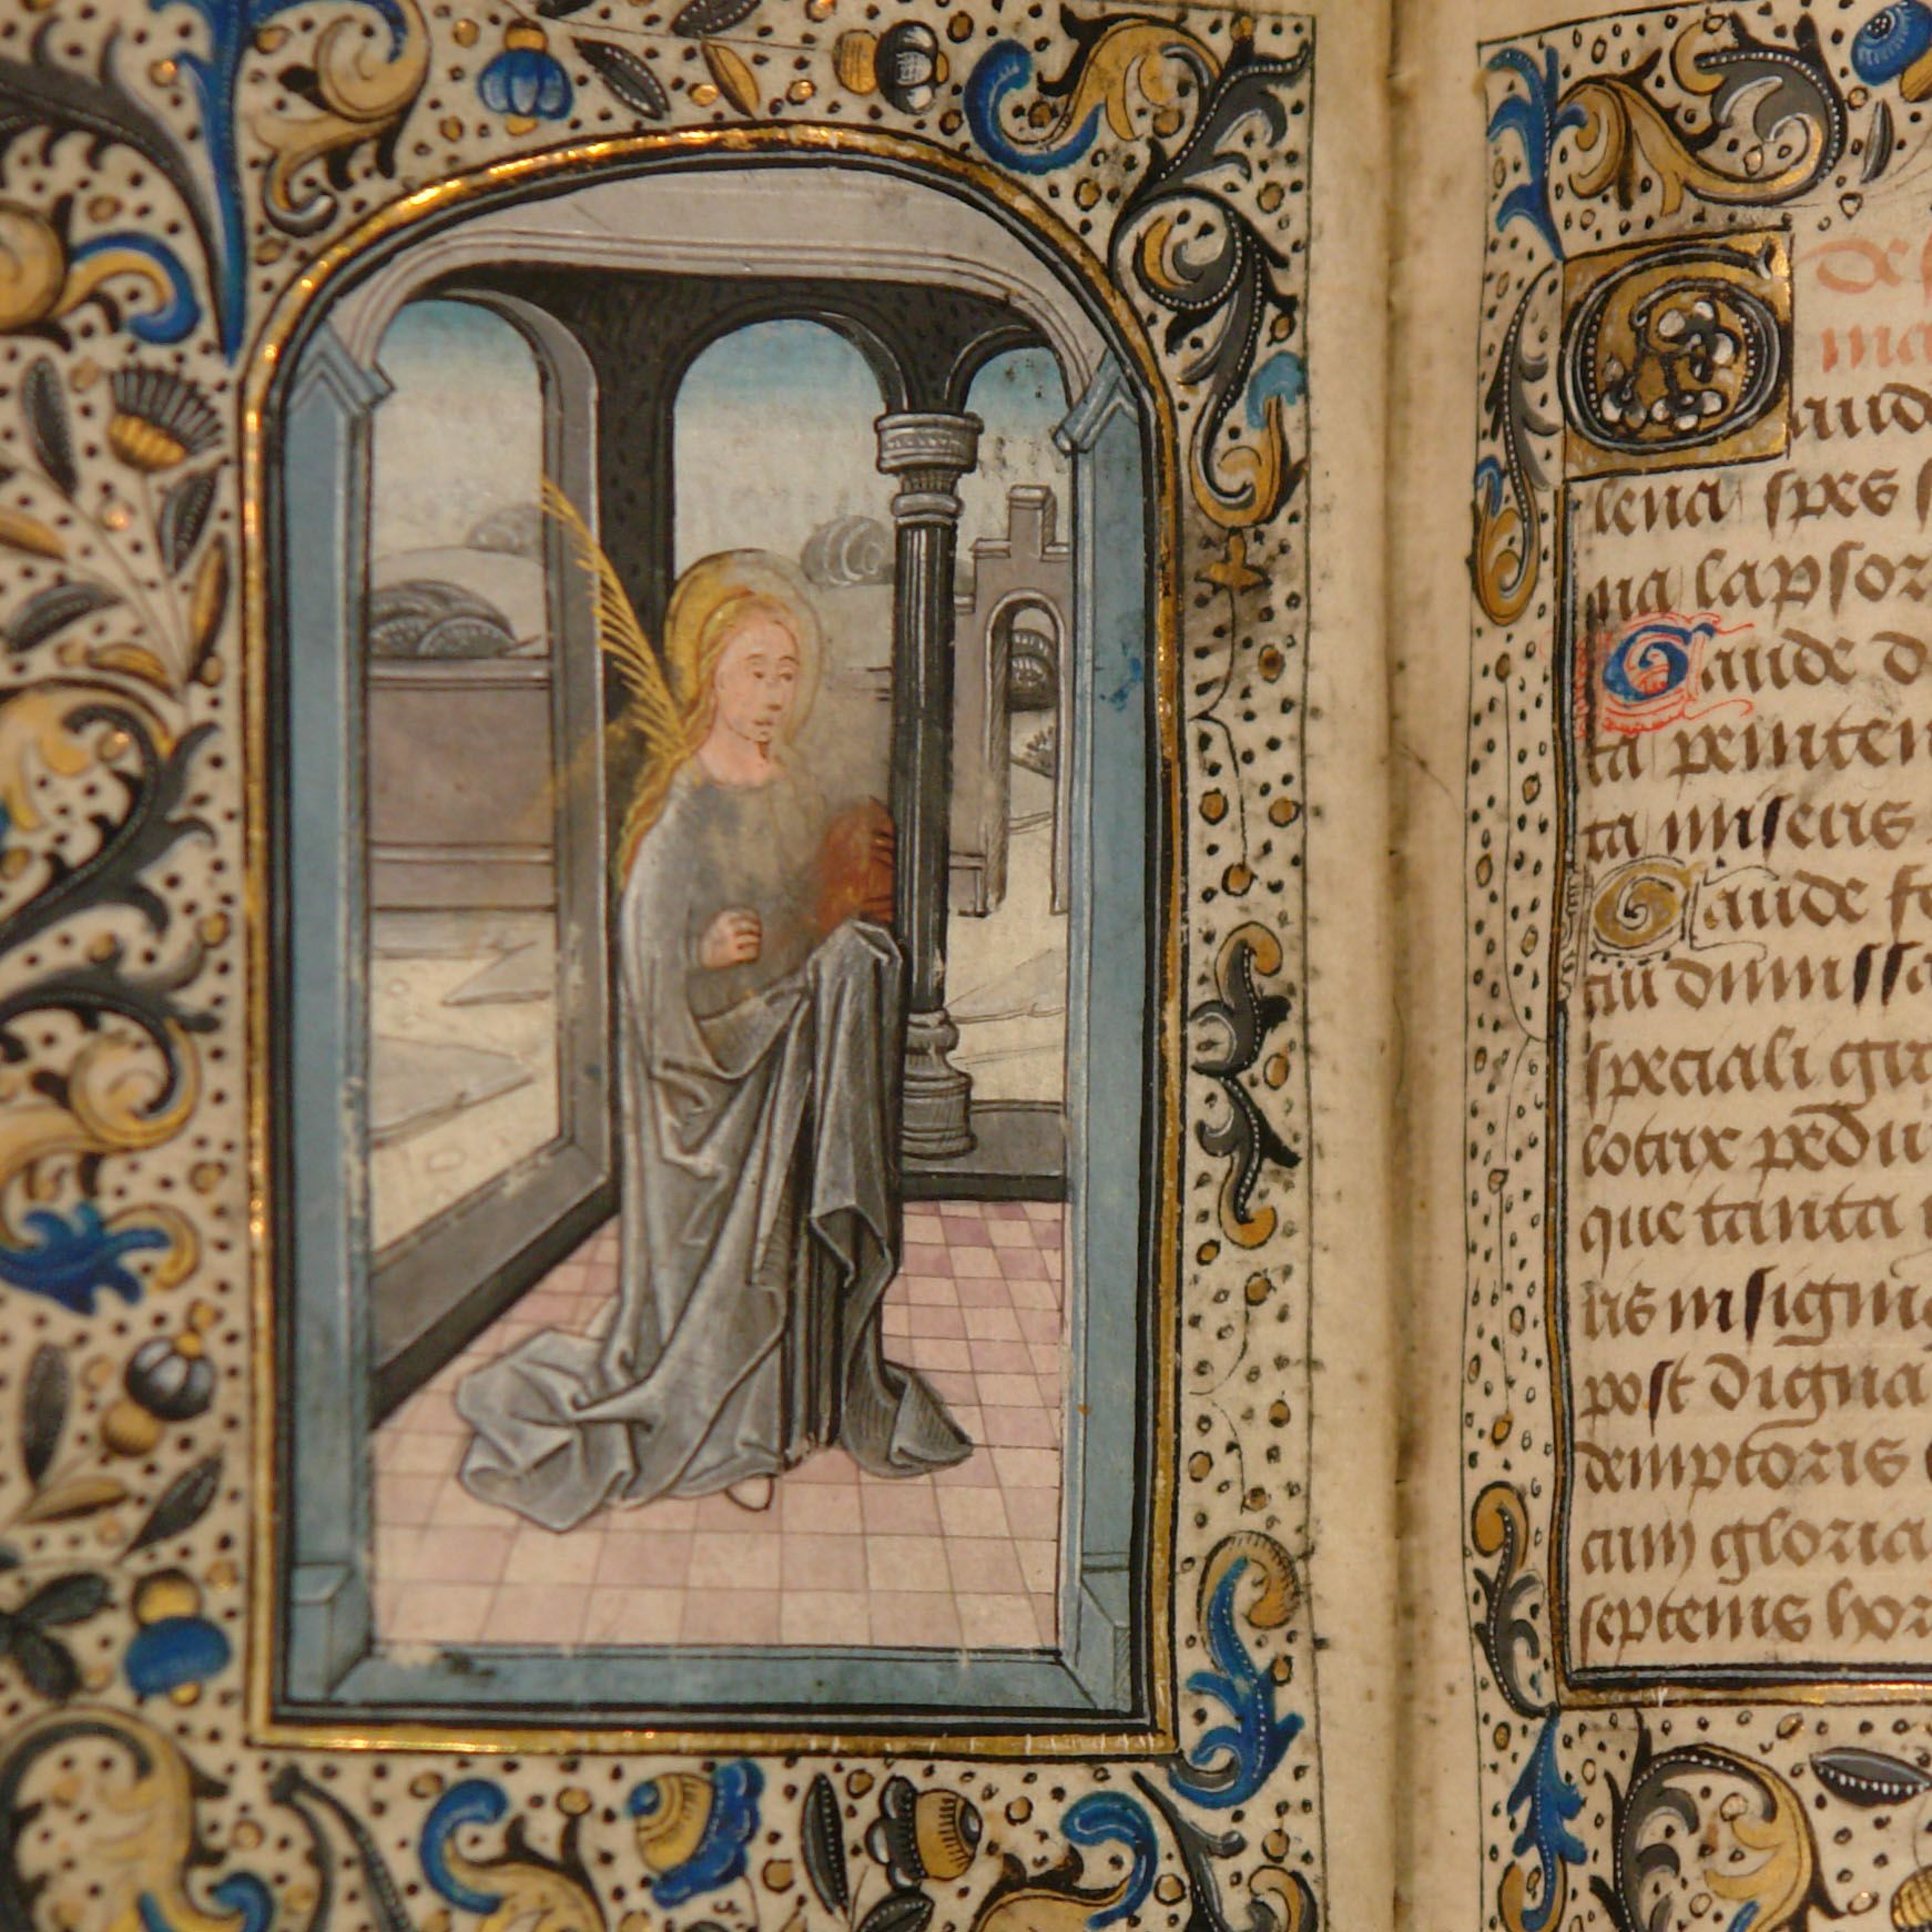 De
ma
Gaud
lena spes
na lapsor
Gaude d
ta peniten
ta miseris
Gaude fe
cui dimissa
speciali gra
lotrix pedu
que tanta
ris insigni
post digna
demptoris
cum gloria
septenis hor